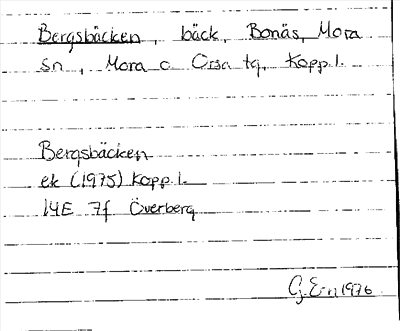 Bergsbäcken, bäck, Bonäs, Mora
sn, Mora o Orsa tg, Kopp. l.
Bergsbäcken
ek (1975) Kopp. l.
14E 7f Överberg
G. E-n 1976